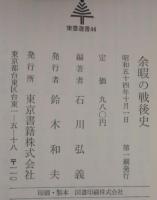 東書選書44
余暇の戦後史
昭和五十四年十月一日 第一刷発行
定価 九八〇円
編著者 石川弘義
発行者 鈴木和夫
発行所 東京書籍株式会社
東京都台東区台東一-五-十八 〒一一〇
印刷・製本 図書印刷株式会社